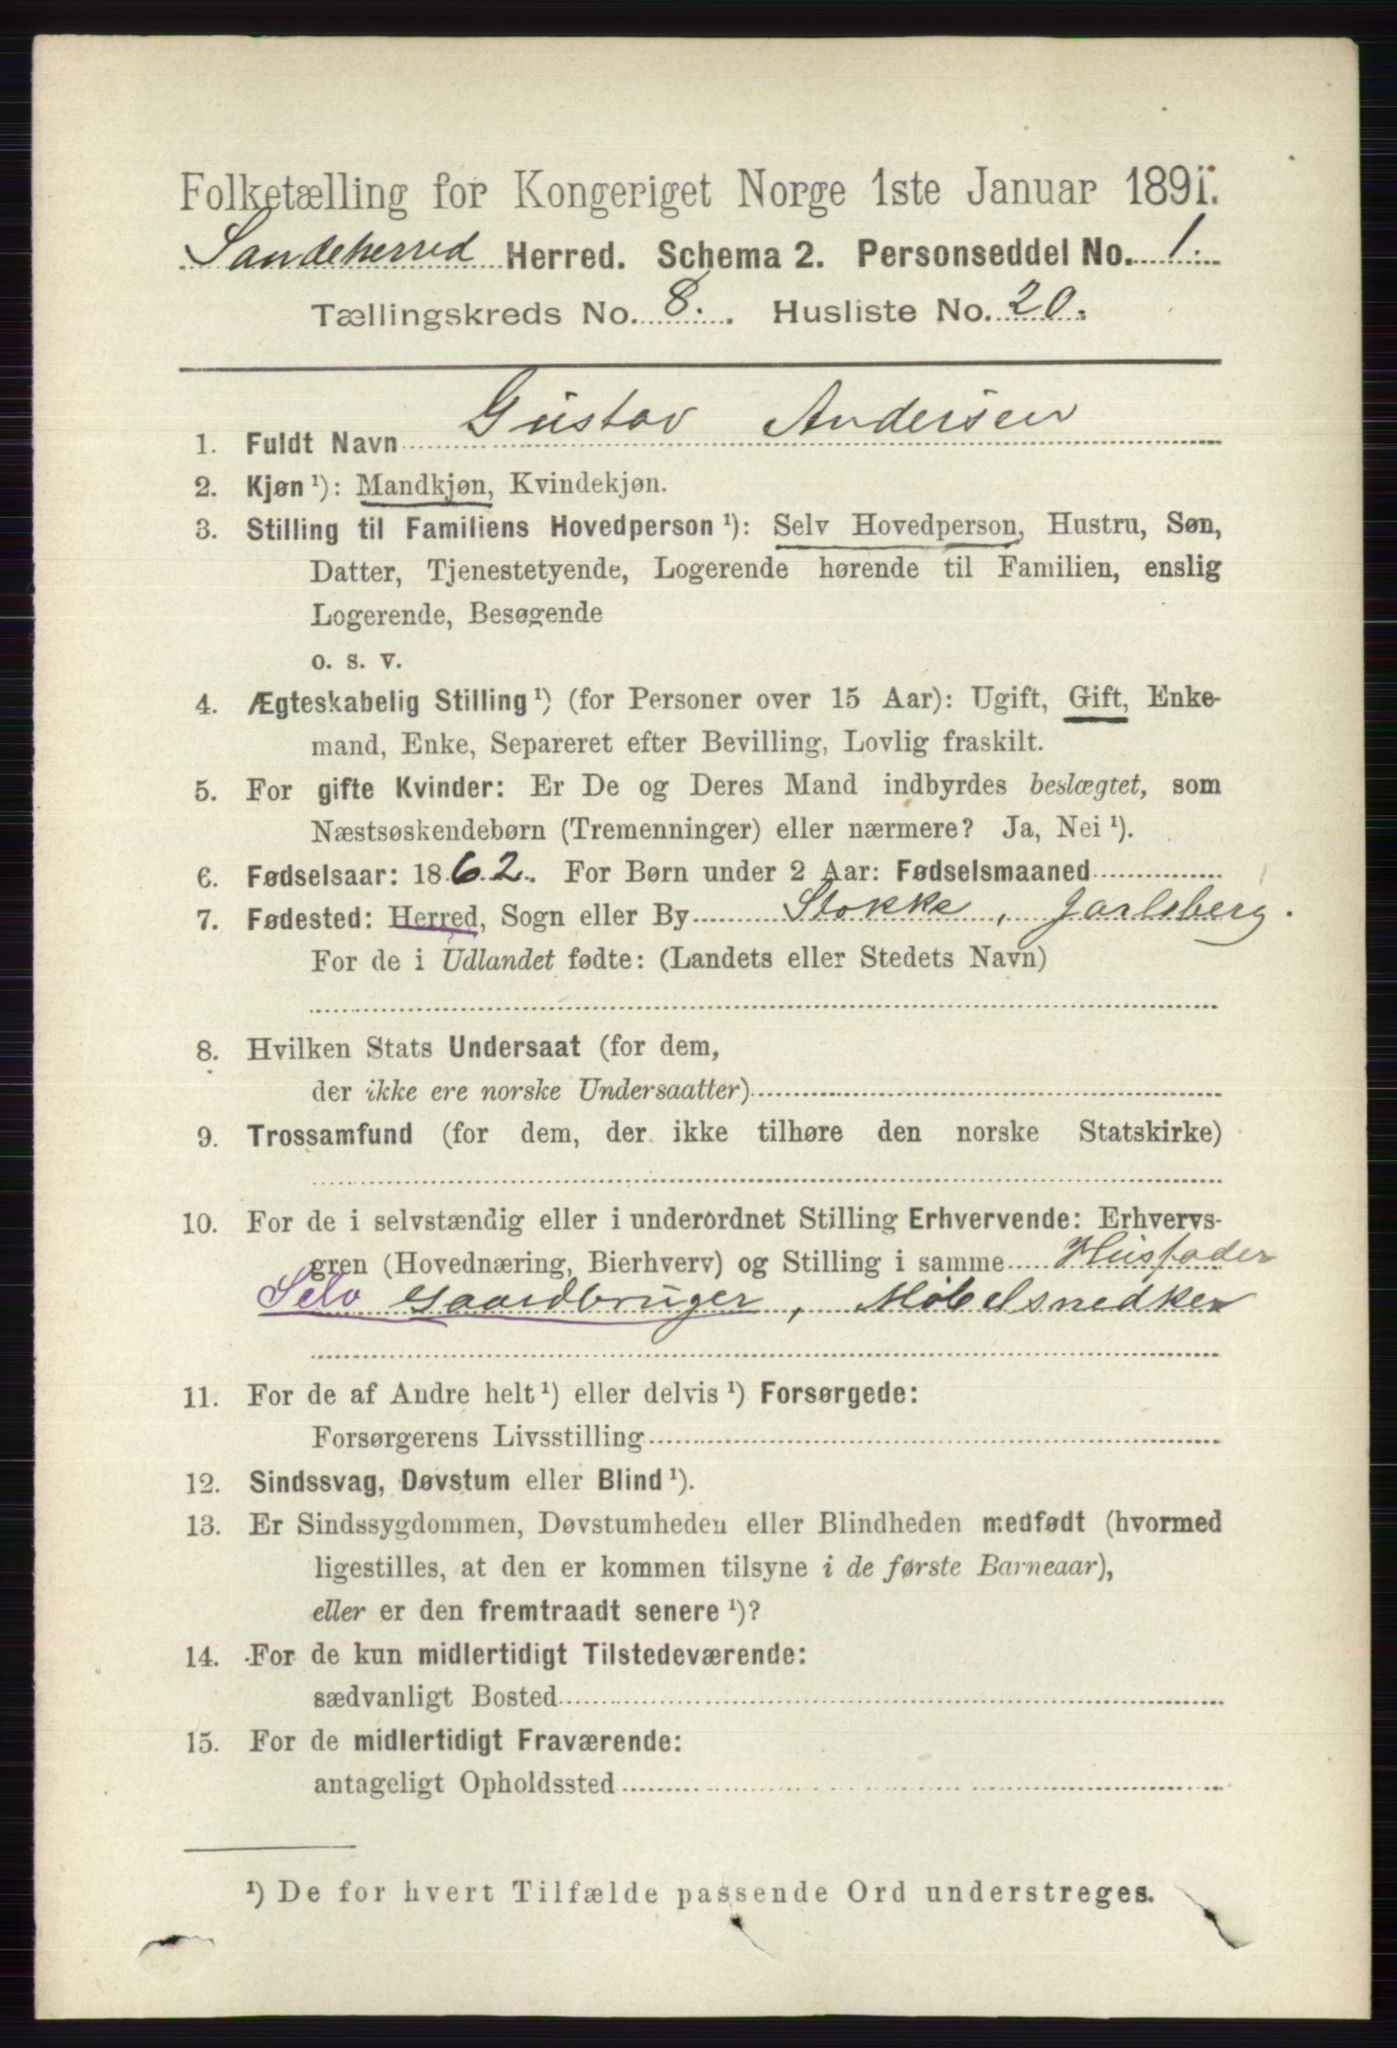 Folketælling for Kongeriget Norge 1ste Januar 1891.
Sandeherred Herred. Schema 2. Personseddel No. 1.
Tællingskreds No. 8. Husliste No. 20.
1. Fuldt Navn Gustav Andersen
2. Kjøn ¹): Mandkjøn, Kvindekjøn.
3. Stilling til Familiens Hovedperson ¹): Selv Hovedperson, Hustru, Søn,
Datter, Tjenestetyende, Logerende hørende til Familien, enslig
Logerende, Besøgende
o. s. v.
4. Ægteskabelig Stilling ¹) (for Personer over 15 Aar): Ugift, Gift, Enke-
mand, Enke, Separeret efter Bevilling, Lovlig fraskilt.
5. For gifte Kvinder: Er De og Deres Mand indbyrdes beslægtet, som
Næstsøskendebørn (Tremenninger) eller nærmere? Ja, Nei ¹).
6. Fødselsaar: 1862. For Børn under 2 Aar: Fødselsmaaned
7. Fødested: Herred, Sogn eller By Stokke, Jarlsberg.
For de i Udlandet fødte: (Landets eller Stedets Navn)
8. Hvilken Stats Undersaat (for dem,
der ikke ere norske Undersaatter)
9. Trossamfund (for dem, der ikke tilhøre den norske Statskirke)
10. For de i selvstændig eller i underordnet Stilling Erhvervende: Erhvervs-
gren (Hovednæring, Bierhverv) og Stilling i samme Husfader
Selv Gaardbruger, Møbelsnedker
11. For de af Andre helt ¹) eller delvis ¹) Forsørgede:
Forsørgerens Livsstilling
12. Sindssvag, Døvstum eller Blind ¹).
13. Er Sindssygdommen, Døvstumheden eller Blindheden medfødt (hvormed
ligestilles, at den er kommen tilsyne i de første Barneaar),
eller er den fremtraadt senere ¹)?
14. For de kun midlertidigt Tilstedeværende:
sædvanligt Bosted
15. For de midlertidigt Fraværende:
antageligt Opholdssted
¹) De for hvert Tilfælde passende Ord understreges.